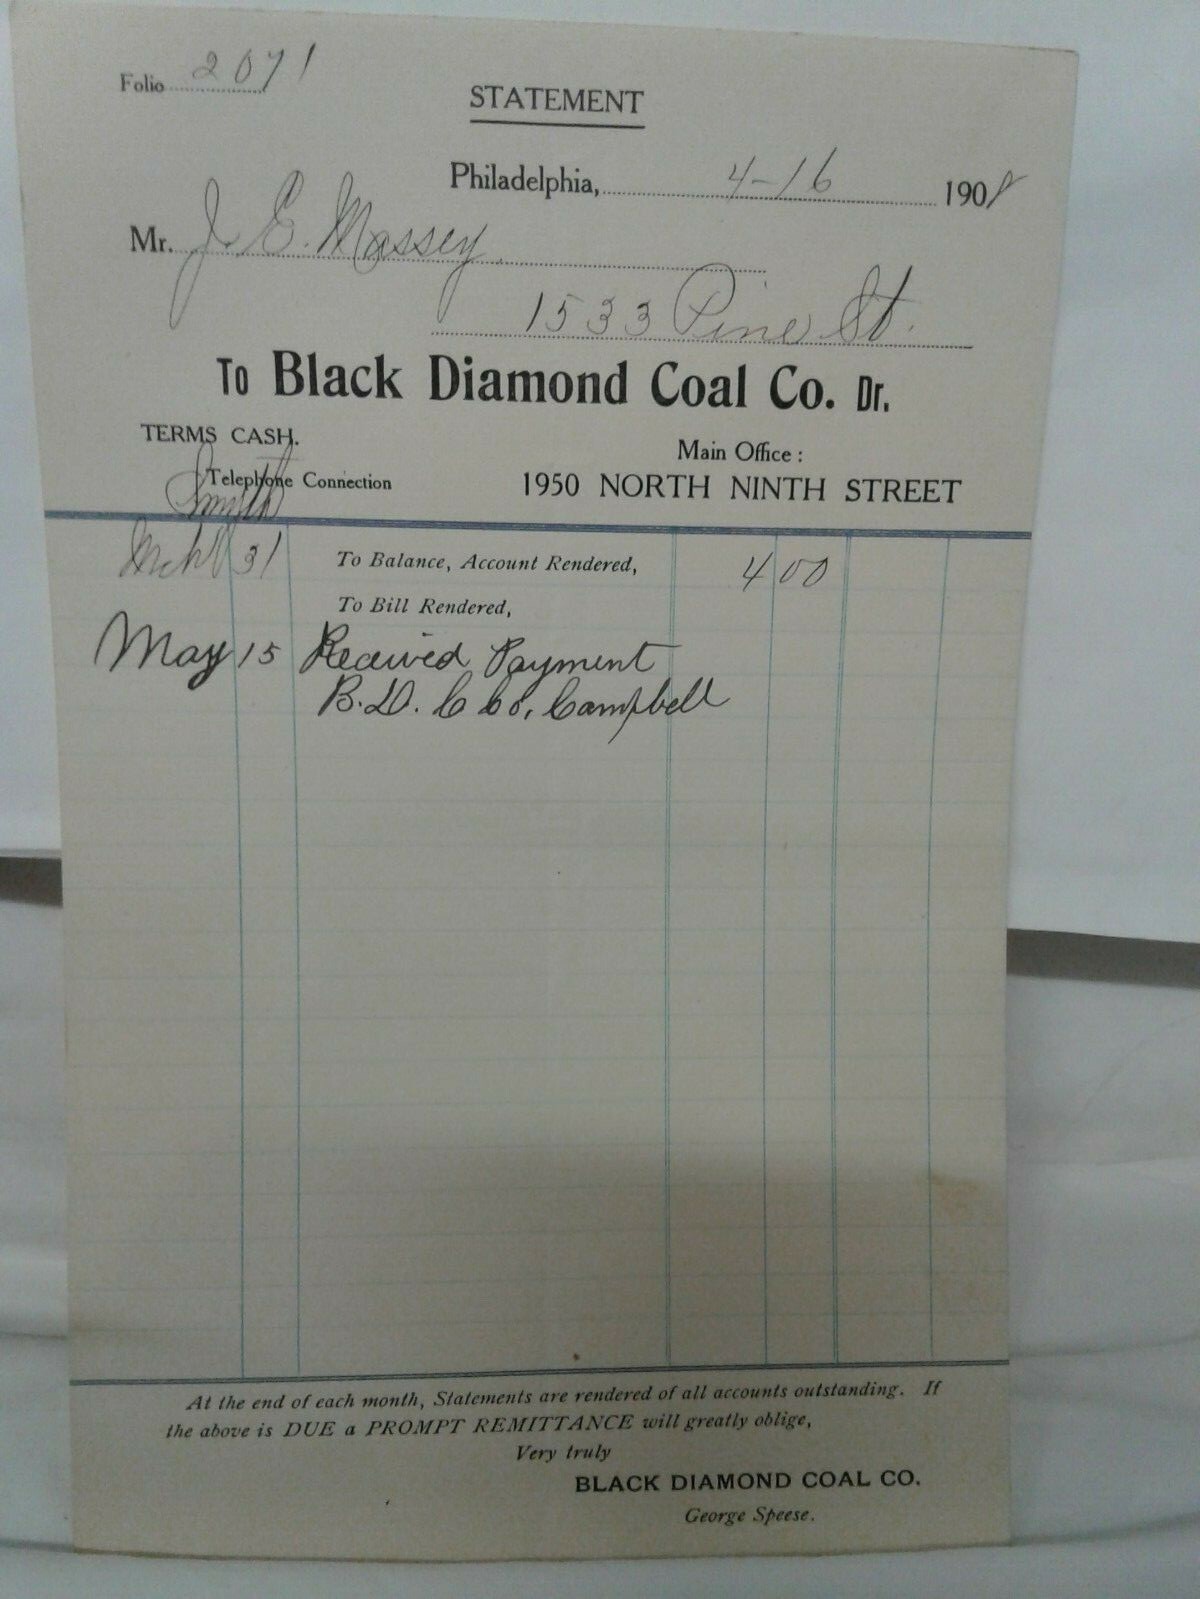 Folio 2071
STATEMENT
Philadelphia, 4-16 1908
Mr. J. E. Massey.
1533 Pine St.
To Black Diamond Coal Co. Dr.
TERMS CASH.
Main Office:
Telephone Connection
1950 NORTH NINTH STREET
Smyth
Mch 31 To Balance, Account Rendered, 4 00
To Bill Rendered,
May 15 Received Payment
B. D. C Co, Campbell
At the end of each month, Statements are rendered of all accounts outstanding. If
the above is DUE a PROMPT REMITTANCE will greatly oblige,
Very truly
BLACK DIAMOND COAL CO.
George Speese.